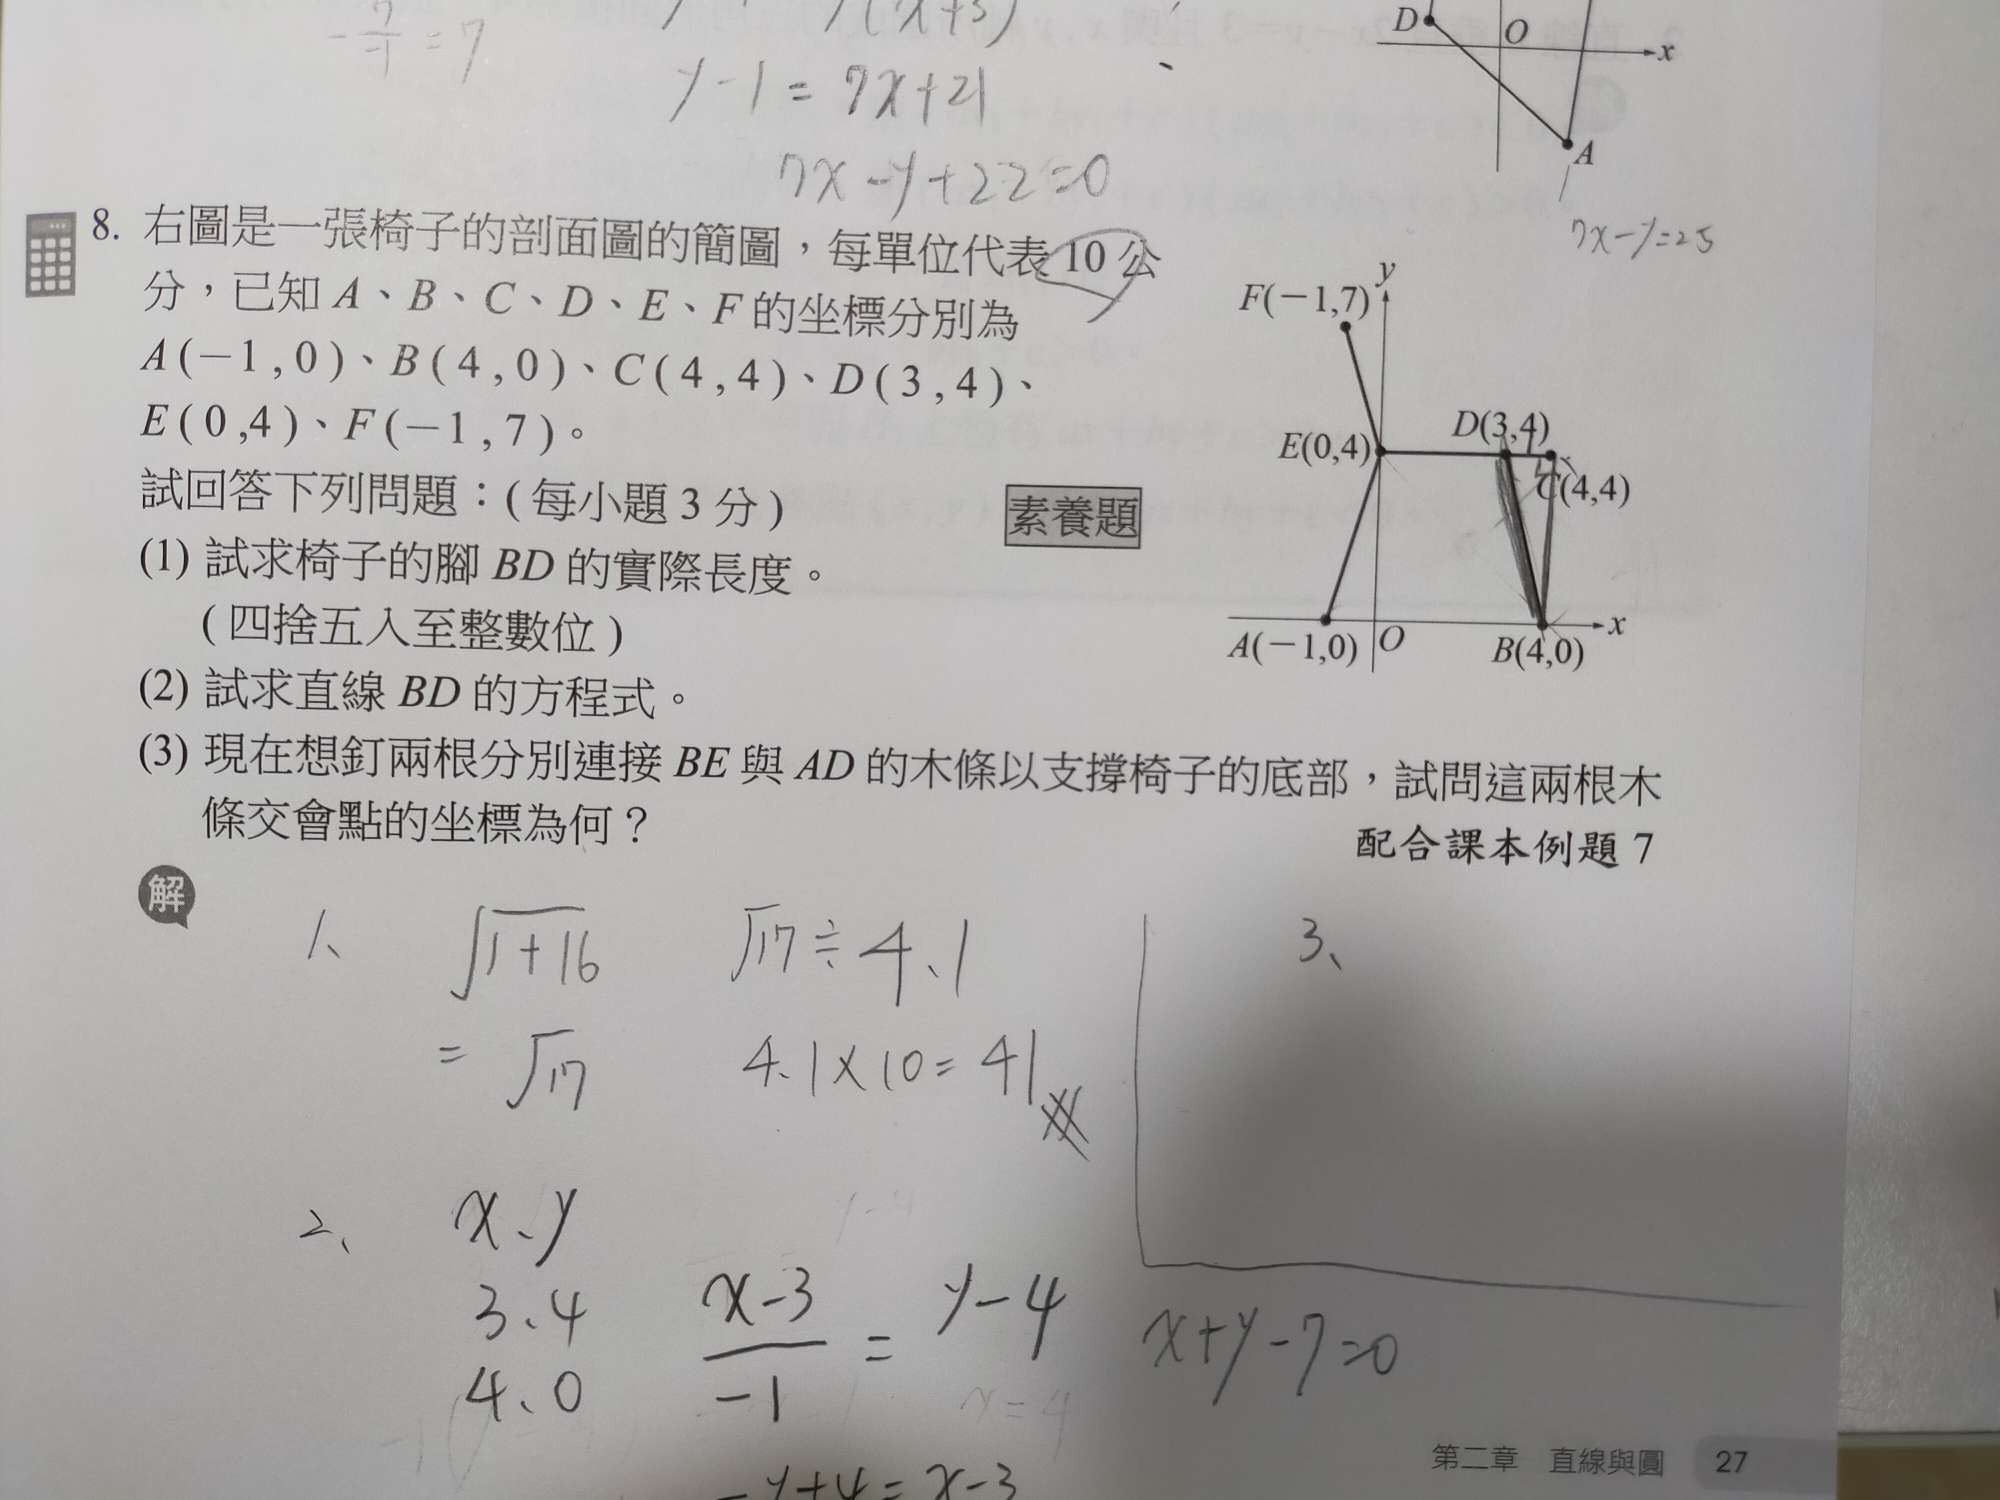 -7/-1 = 7
7(x+3)
y-1 = 7x+21
7x-y+22=0
D
O
x
A
7x-y=25
8. 右圖是一張椅子的剖面圖的簡圖，每單位代表 10 公
分，已知 A、B、C、D、E、F 的坐標分別為
A(−1,0)、B(4,0)、C(4,4)、D(3,4)、
E(0,4)、F(−1,7)。
試回答下列問題：(每小題 3 分)
素養題
(1) 試求椅子的腳 BD 的實際長度。
(四捨五入至整數位)
(2) 試求直線 BD 的方程式。
(3) 現在想釘兩根分別連接 BE 與 AD 的木條以支撐椅子的底部，試問這兩根木
條交會點的坐標為何？
配合課本例題 7
y
F(−1,7)
D(3,4)
E(0,4)
C(4,4)
x
A(−1,0)
O
B(4,0)
解
1、 √1+16 √17 ÷ 4.1
= √17 4.1×10=41
3、
2、 x、y
3、4 x-3/-1 = y-4
4、0
x+y-7=0
-y+4=x-3
第二章 直線與圓 27